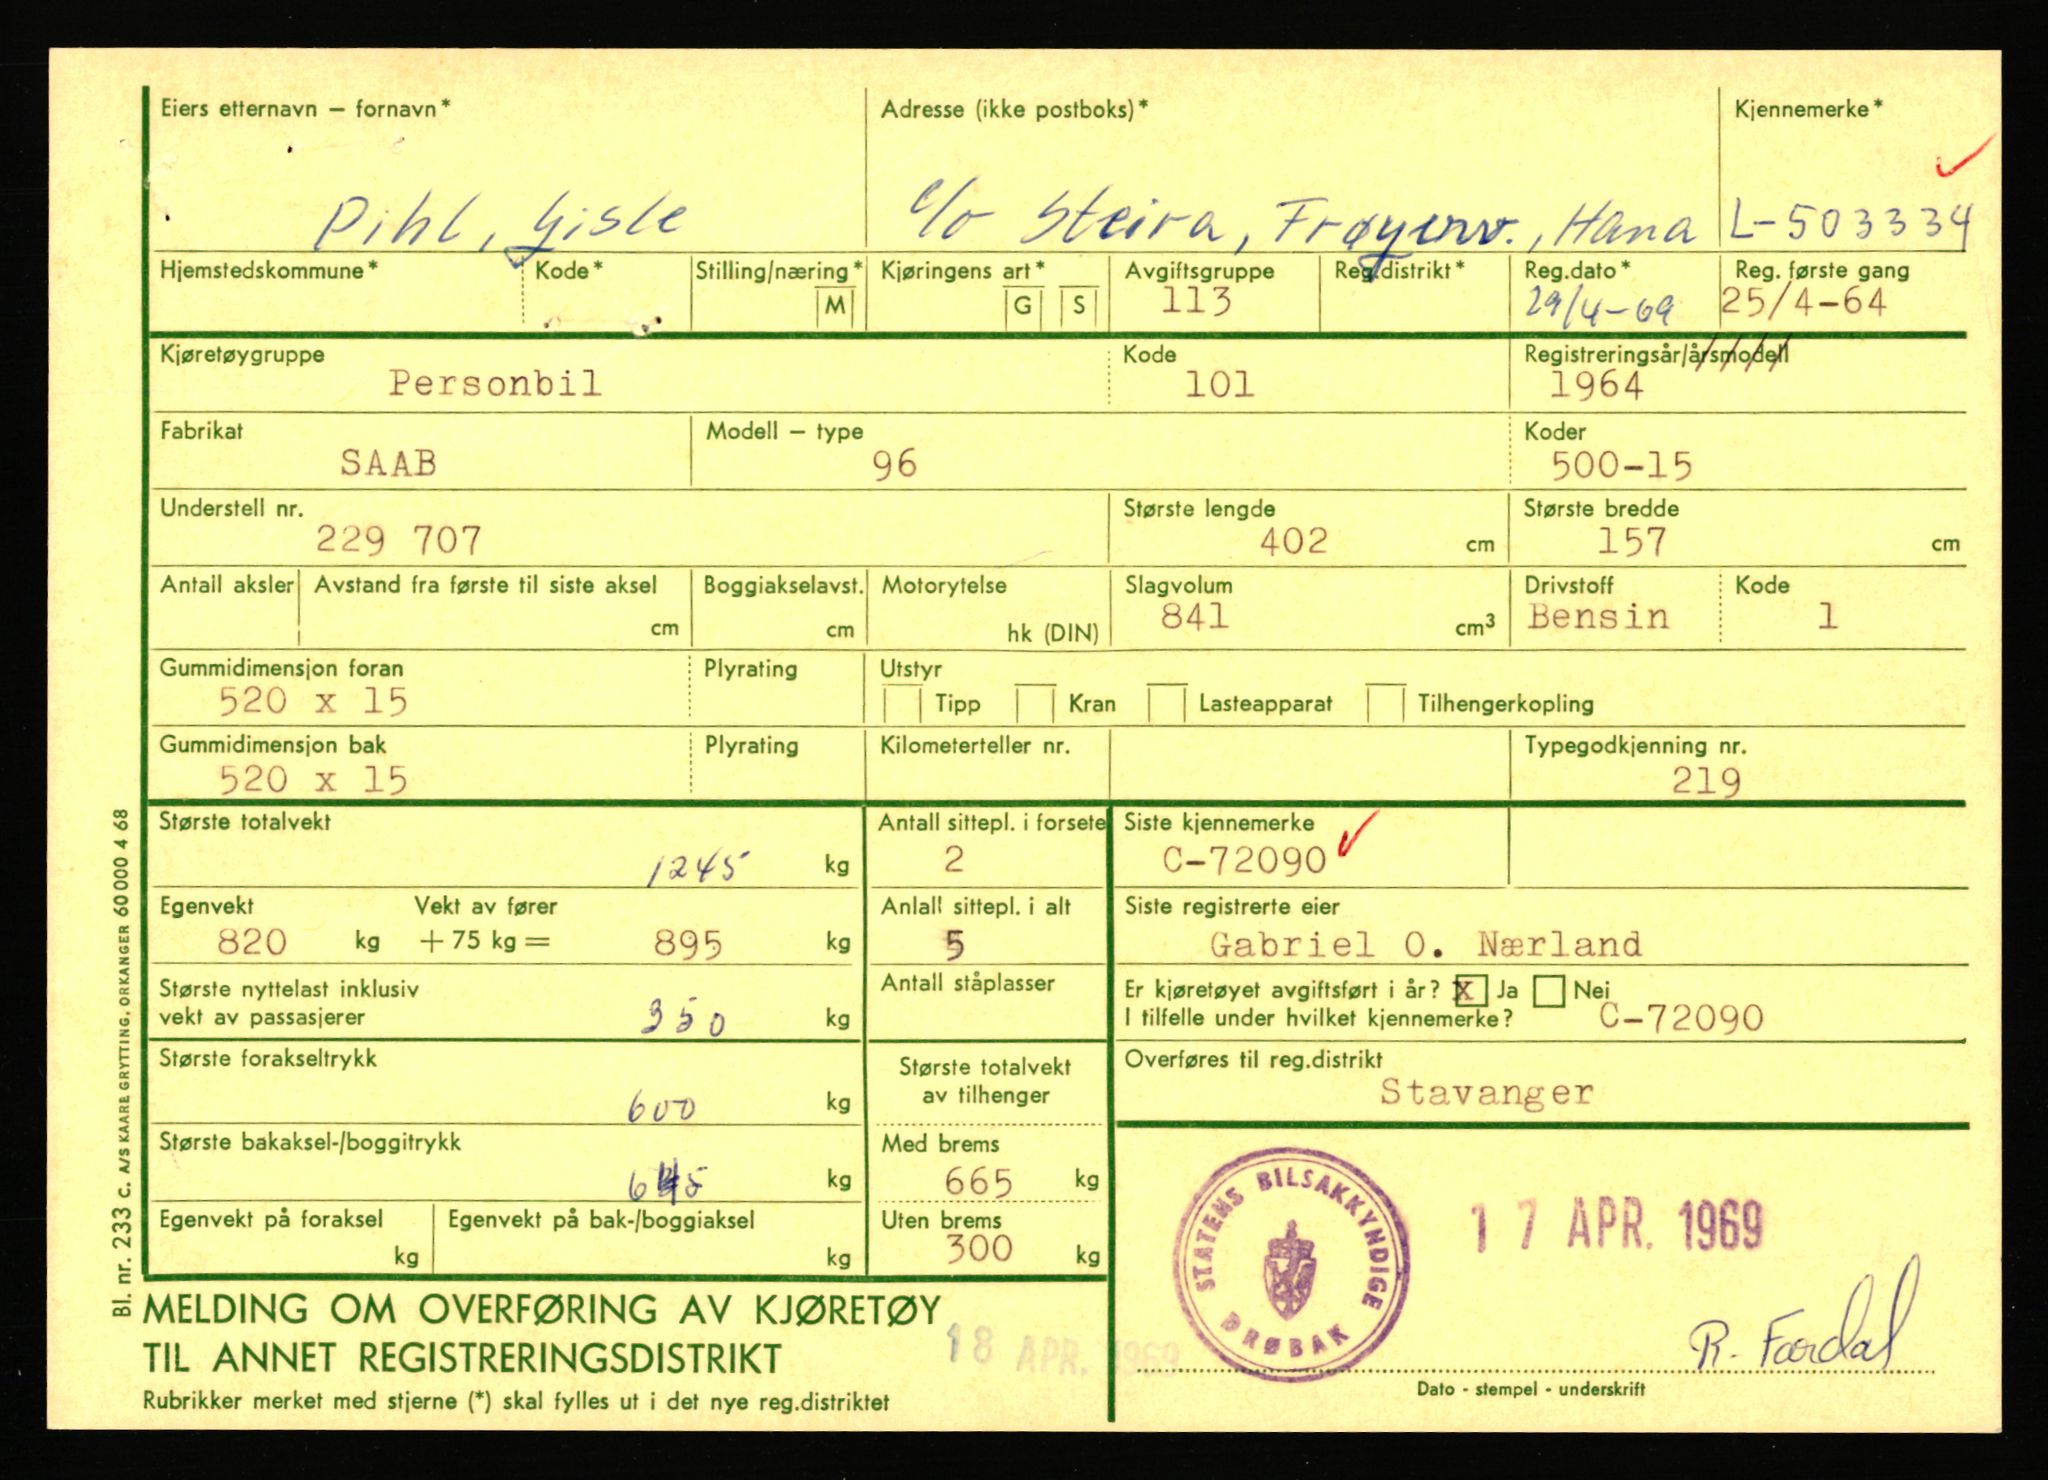 Eiers etternavn — fornavn*
Adresse (ikke postboks)*
Kjennemerke*
Pihl, Gisle
c/o Steira, Frøyerv., Hana
L-503334
Hjemstedskommune*
Kode*
Stilling/næring*
M
Kjøringens art*
G
S
Avgiftsgruppe
113
Reg.distrikt*
Reg.dato*
29/4-69
Reg. første gang
25/4-64
Kjøretøygruppe
Personbil
Kode
101
Registreringsår/årsmodell
1964
Fabrikat
SAAB
Modell — type
96
Koder
500-15
Understell nr.
229 707
Største lengde
402 cm
Største bredde
157 cm
Antall aksler
Avstand fra første til siste aksel
cm
Boggiakselavst.
cm
Motorytelse
hk (DIN)
Slagvolum
841 cm³
Drivstoff
Bensin
Kode
1
Gummidimensjon foran
520 x 15
Plyrating
Utstyr
Tipp
Kran
Lasteapparat
Tilhengerkopling
Gummidimensjon bak
520 x 15
Plyrating
Kilometerteller nr.
Typegodkjenning nr.
219
Største totalvekt
1245 kg
Antall sittepl. i forsete
2
Siste kjennemerke
C-72090
Egenvekt
820 kg
Vekt av fører
+ 75 kg = 895 kg
Antall sittepl. i alt
5
Siste registrerte eier
Gabriel O. Nærland
Største nyttelast inklusiv
vekt av passasjerer
350 kg
Antall ståplasser
Er kjøretøyet avgiftsført i år? X Ja Nei
I tilfelle under hvilket kjennemerke? C-72090
Største forakseltrykk
600 kg
Største totalvekt
av tilhenger
Overføres til reg.distrikt
Stavanger
Største bakaksel-/boggitrykk
645 kg
Med brems
665 kg
Egenvekt på foraksel
kg
Egenvekt på bak-/boggiaksel
kg
Uten brems
300 kg
STATENS BILSAKKYNDIGE
DRØBAK
17 APR. 1969
R. Fardal
Dato - stempel - underskrift
MELDING OM OVERFØRING AV KJØRETØY
TIL ANNET REGISTRERINGSDISTRIKT
18 APR. 1969
Rubrikker merket med stjerne (*) skal fylles ut i det nye reg.distriktet
Bl. nr. 233 C. A/S KAARE GRYTTING, ORKANGER 60 000 4 68